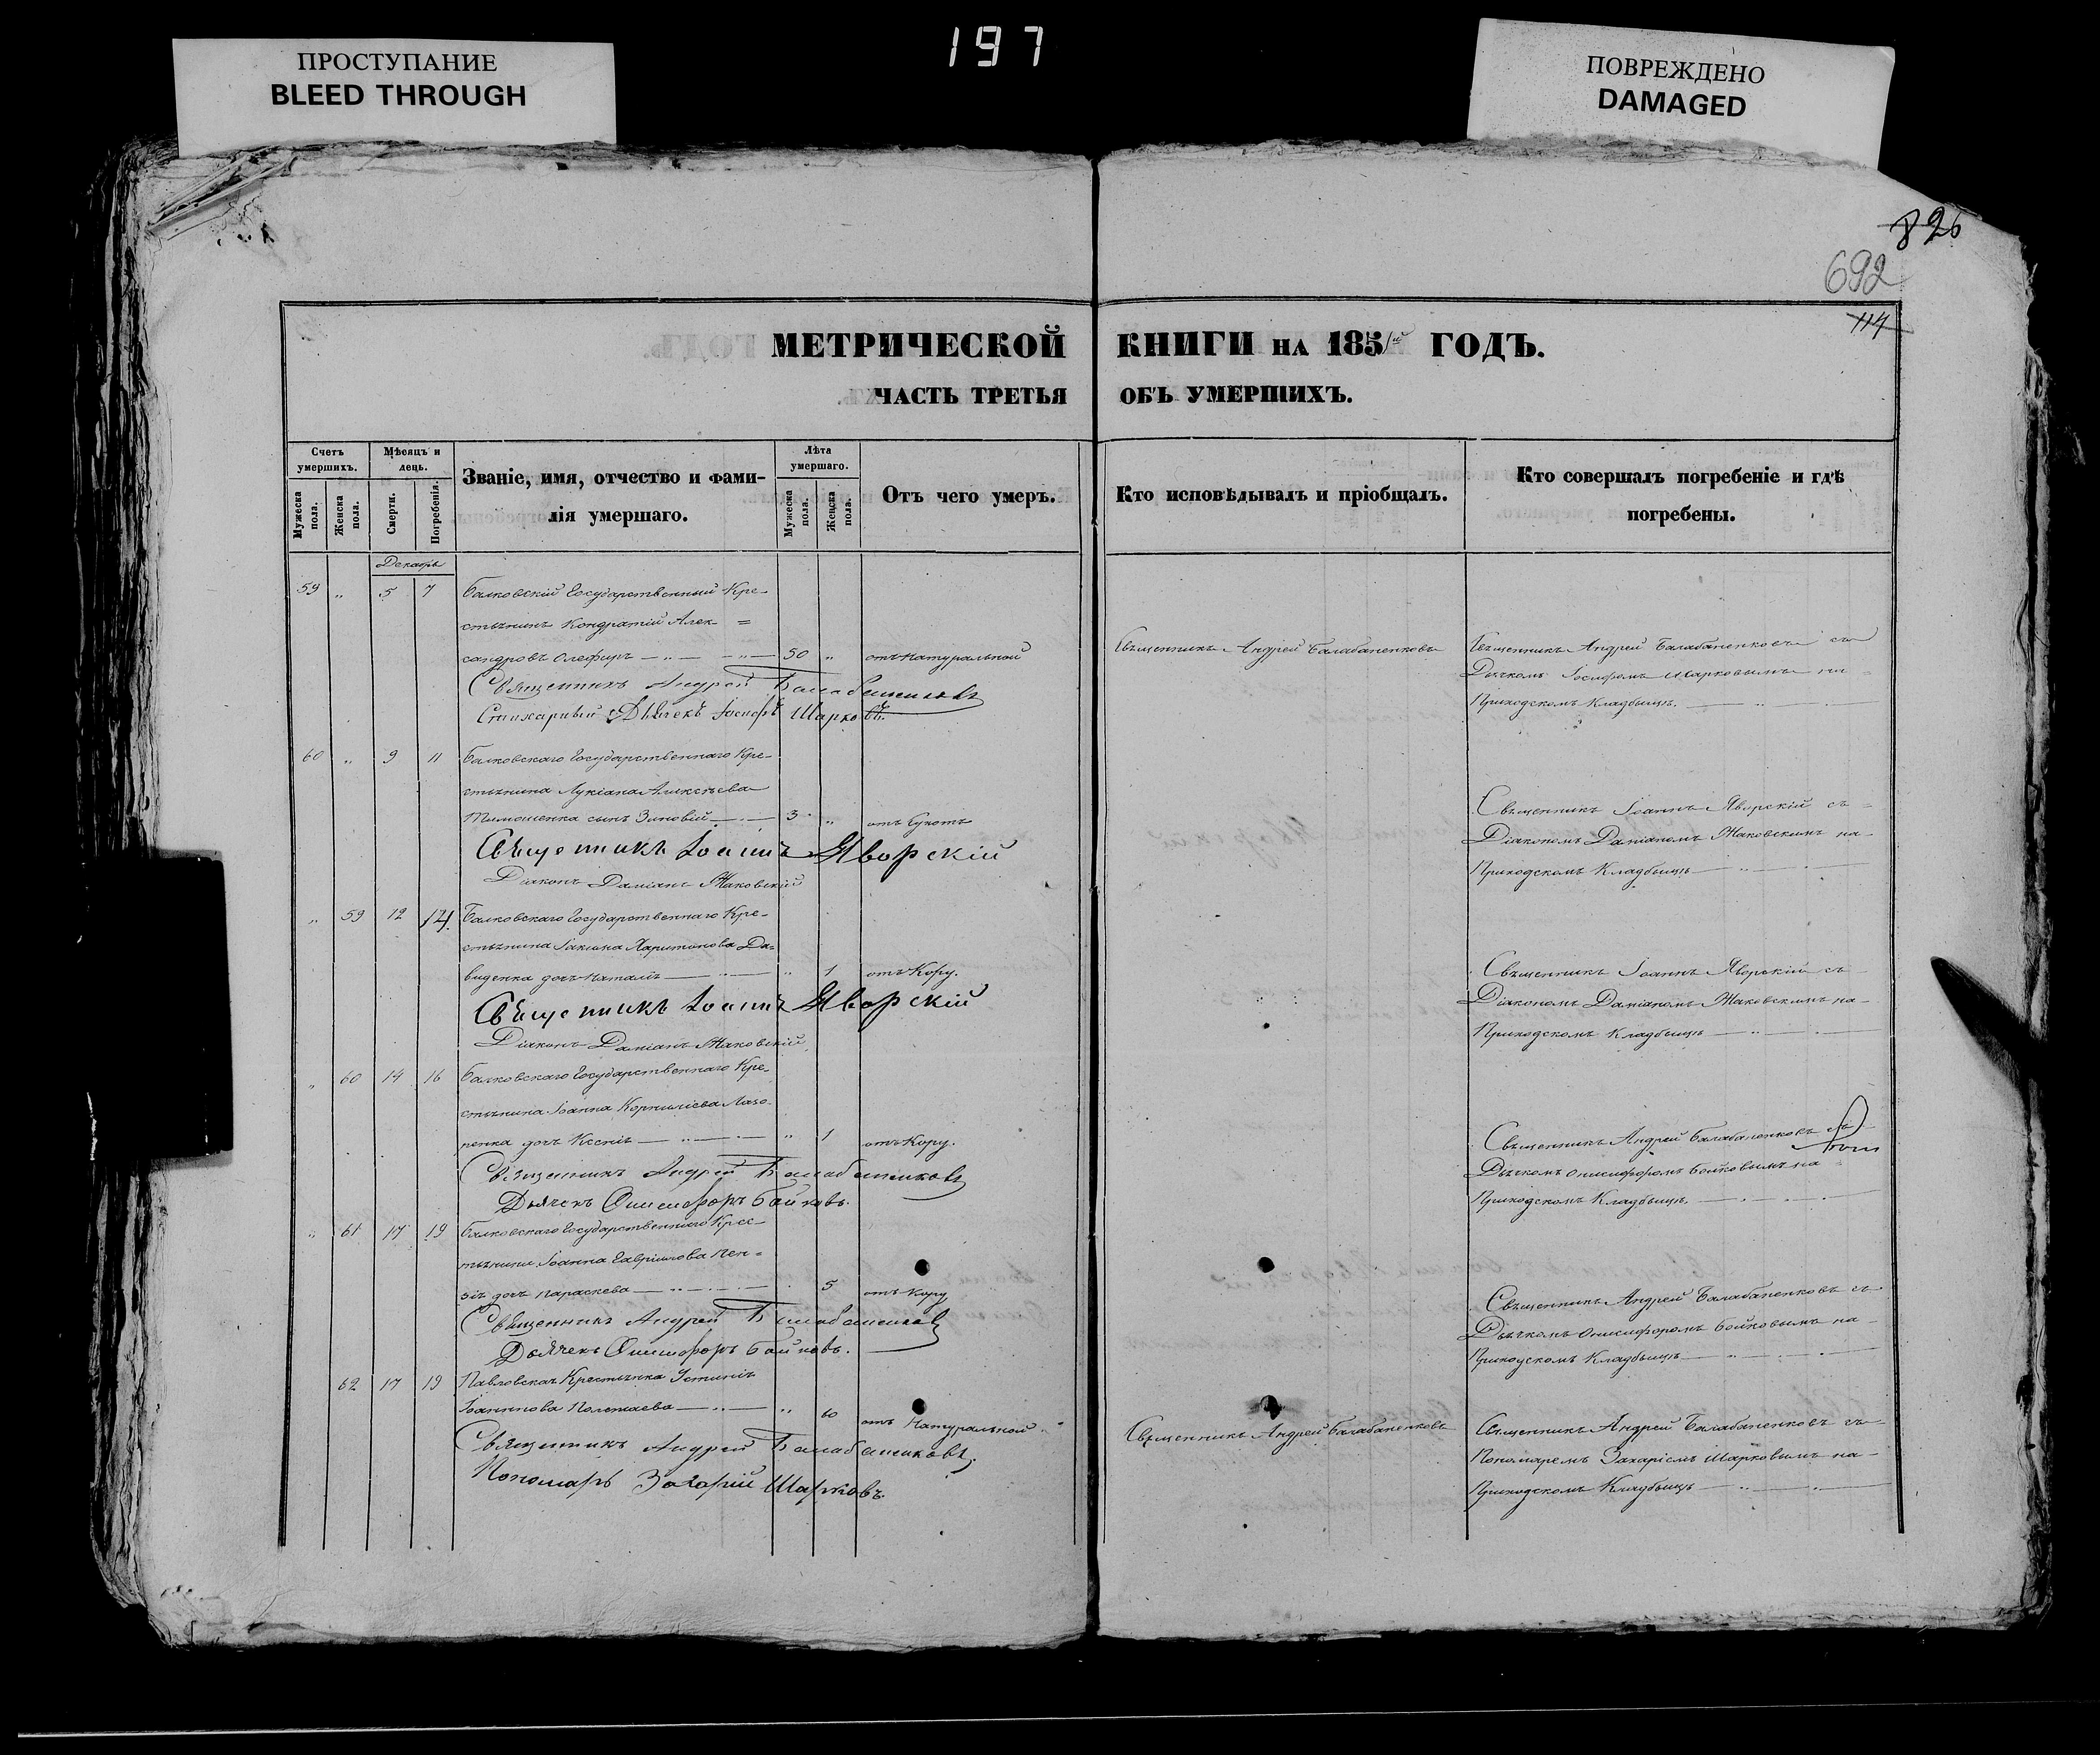 197
ПРОСТУПАНИЕ
BLEED THROUGH
ПОВРЕЖДЕНО
DAMAGED
826
692
114
МЕТРИЧЕСКОЙ КНИГИ НА 1851й ГОДЪ.
ЧАСТЬ ТРЕТЬЯ ОБЪ УМЕРШИХЪ.
Счетъ умершихъ.
Мужеска пола.
Женска пола.
Мѣсяцъ и день.
Смерти.
Погребенія.
Званіе, имя, отчество и фами-
лія умершаго.
Лѣта умершаго.
Мужеска пола.
Женска пола.
Отъ чего умеръ.
Кто исповѣдывалъ и пріобщалъ.
Кто совершалъ погребеніе и гдѣ
погребены.
Декабрь
59 „ 5 7 Балковскій Государственный Кре-
стьянинъ Кондратій Алек- =
сандровъ Олефиръ — 50 „ отъ натуральной
Священникъ Андрей Балабаненковъ
Священникъ Андрей Балабаненковъ съ
Дьячкомъ Іосифомъ Шарковымъ на
Приходскомъ Кладбищѣ.
Священникъ Андрей Балабаненковъ
Стихарный Дьячекъ Іосифъ Шарковъ.
60 „ 9 11 Балковскаго Государственнаго Кре-
стьянина Лукіана Алексѣева
Тимошенка сынъ Зиновій — 3 „ отъ Сухотъ
Священникъ Іоаннъ Яворскій съ
Діакономъ Даміаномъ Маковскимъ на
Приходскомъ Кладбищѣ
Священникъ Іоаннъ Яворскій
Діаконъ Даміанъ Маковскій
„ 59 12 14. Балковскаго Государственнаго Кре-
стьянина Іакима Харитонова Да-
виденка дочь Наталія — „ 1 отъ Кору.
Священникъ Іоаннъ Яворскій съ
Діакономъ Даміаномъ Маковскимъ на
Приходскомъ Кладбищѣ
Священникъ Іоаннъ Яворскій
Діаконъ Даміанъ Маковскій
„ 60 14 16 Балковскаго Государственнаго Кре-
стьянина Іоанна Корниліева Лазо-
ренка дочь Ксенія — „ 1 отъ Кору.
Священникъ Андрей Балабаненковъ съ
Дьячкомъ Онисифоромъ Бойковымъ на
Приходскомъ Кладбищѣ.
Священникъ Андрей Балабаненковъ
Дьячекъ Онисифоръ Бойковъ.
„ 61 17 19 Балковскаго Государственнаго Крес-
тьянина Іоанна Гавріилова Пен-
зія дочь Параскева — 5 отъ Кору
Священникъ Андрей Балабаненковъ съ
Дьячкомъ Онисифоромъ Бойковымъ на
Приходскомъ Кладбищѣ
Священникъ Андрей Балабаненковъ
Дьячекъ Онисифоръ Бойковъ.
62 17 19 Павловская Крестьянка Устинія
Іоаннова Полетаева — „ 60 отъ натуральной
Священникъ Андрей Балабаненковъ
Священникъ Андрей Балабаненковъ съ
Пономаремъ Захаріемъ Шарковымъ на
Приходскомъ Кладбищѣ
Священникъ Андрей Балабаненковъ.
Пономарь Захарій Шарковъ